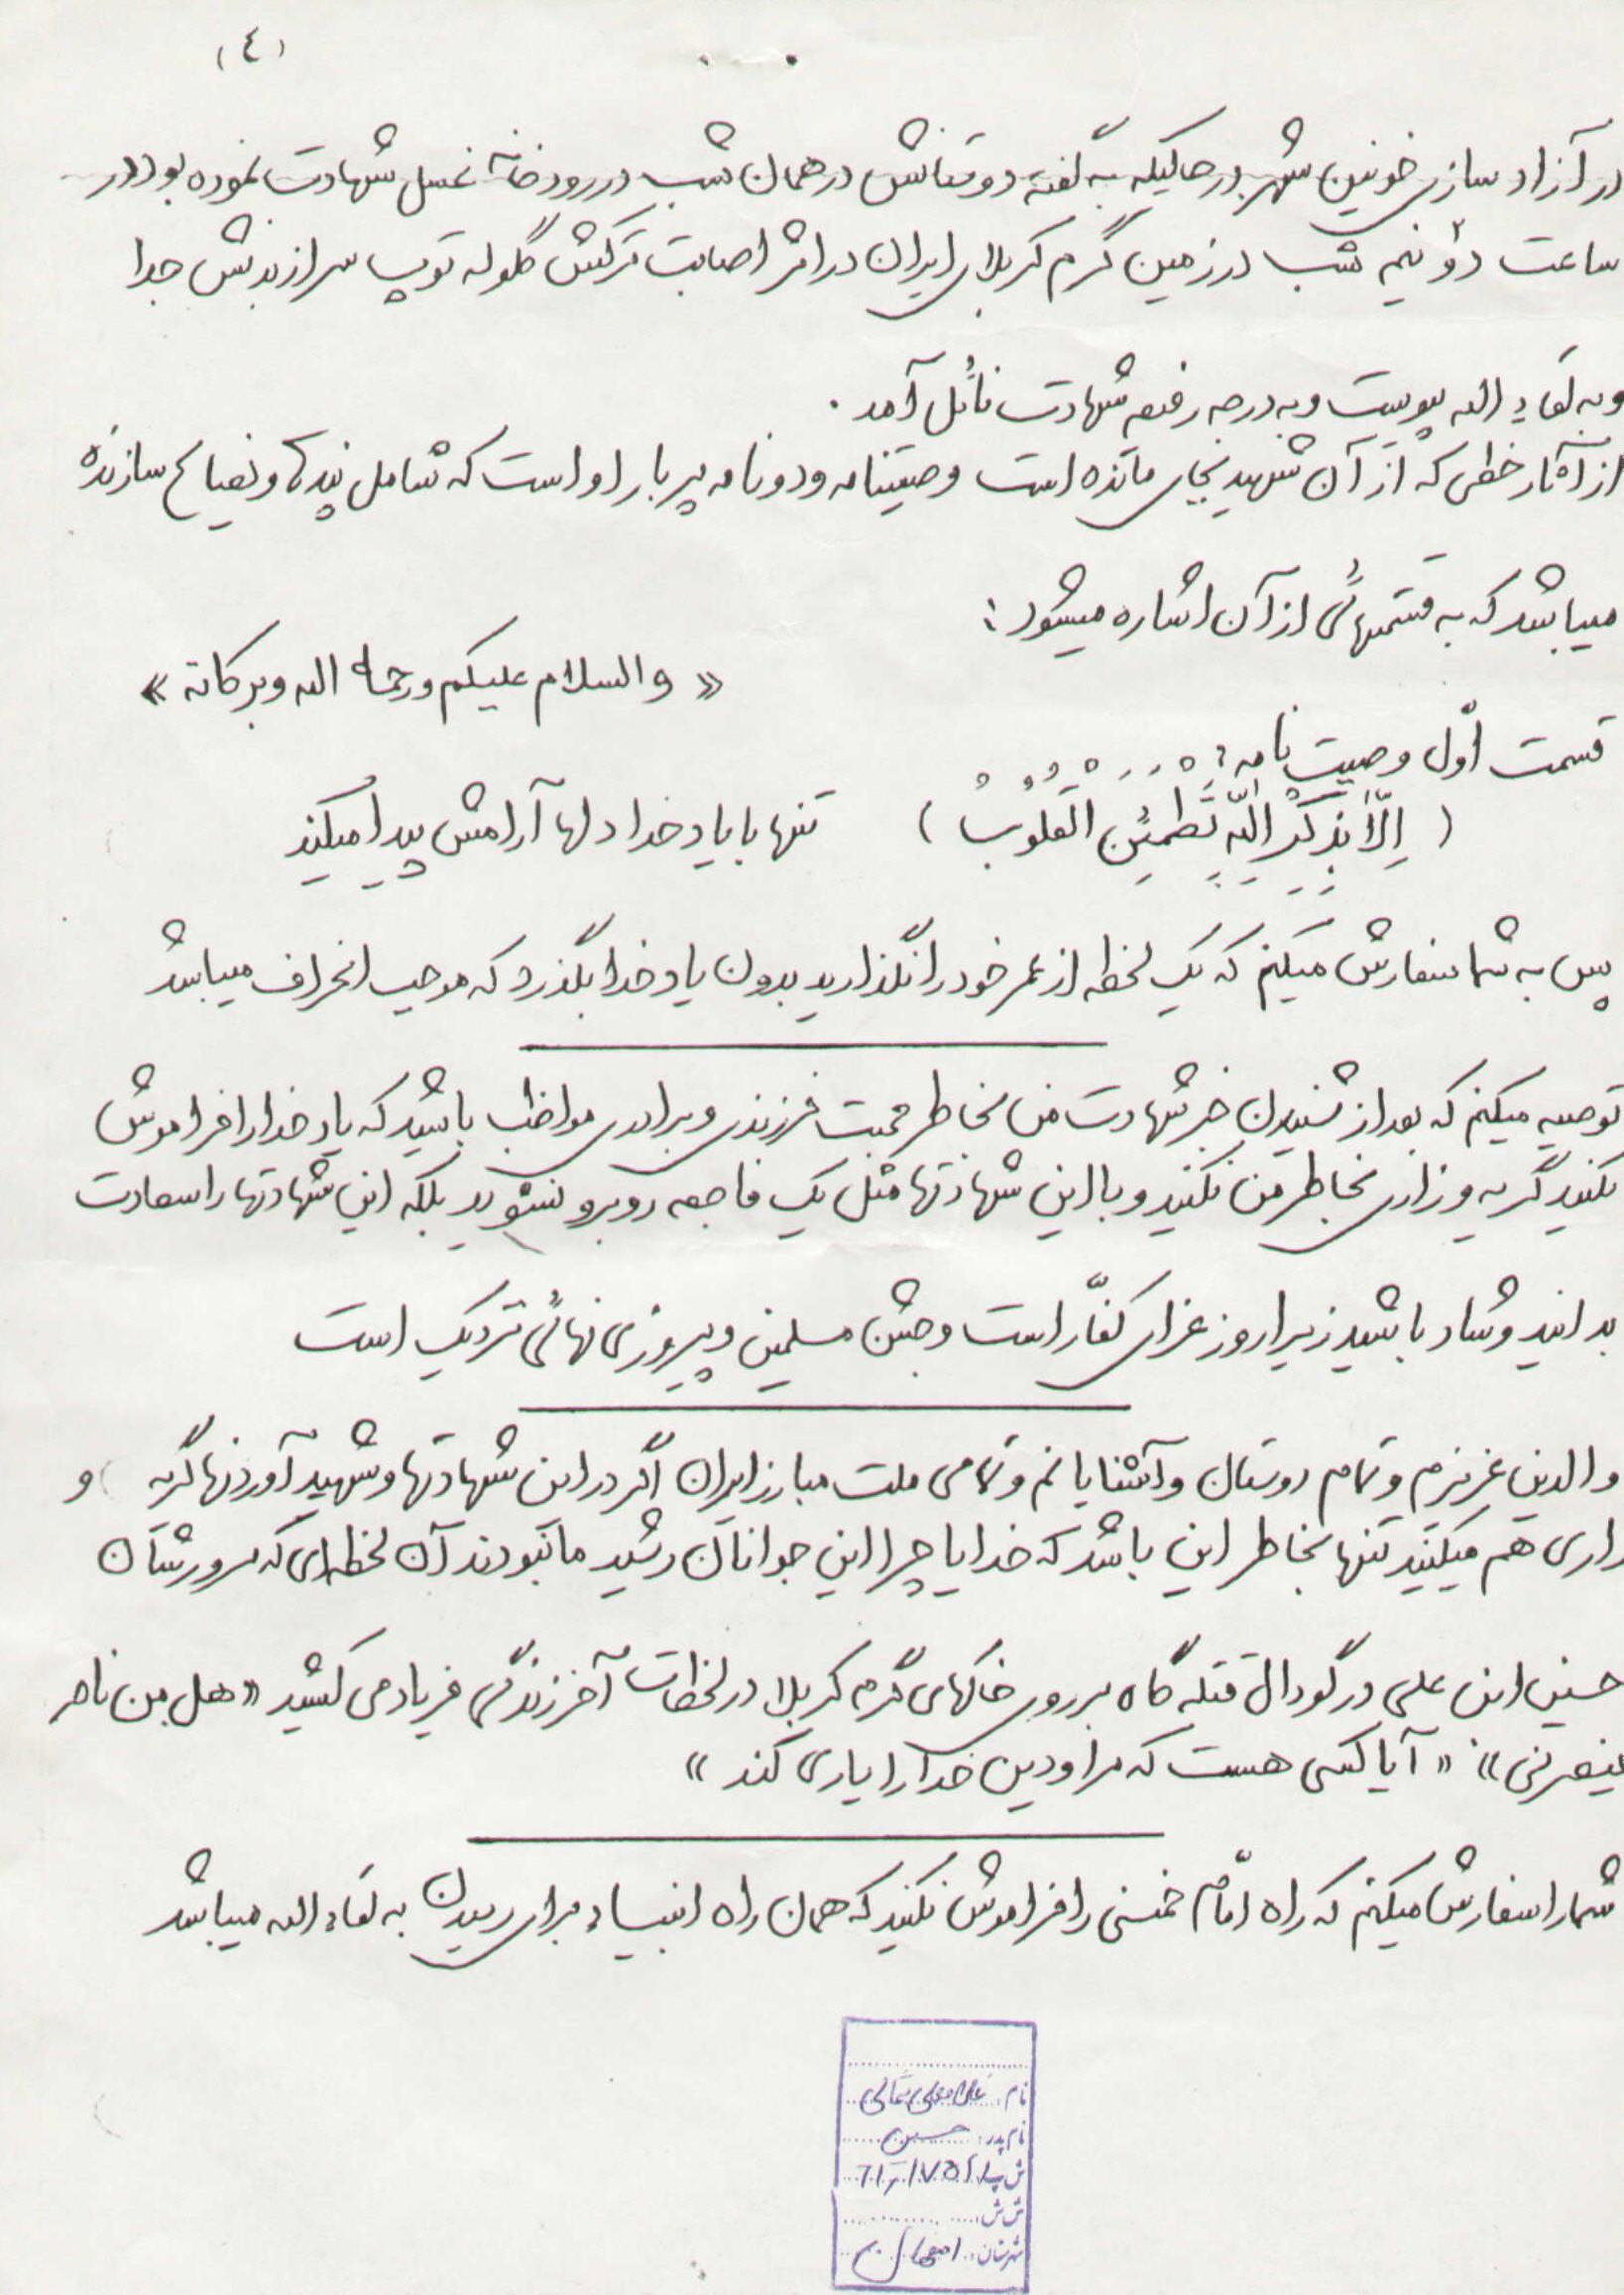 (٤)
در آزاد سازی خونین شهر در حالیکه به گفته دوستانش در همان شب در رودخانه غسل شهادت نموده بود در
ساعت دو نیم شب در زمین گرم کربلای ایران در اثر اصابت ترکش گلوله توپ سر از بدنش جدا
و به لقاء الله پیوست و به درجه رفیع شهادت نائل آمد .
از آثار خطی که از آن شهید بجای مانده است وصیتنامه و دو نامه پر بار او است که شامل پندها و نصایح سازنده
میباشد که به قسمتهائی از آن اشاره میشود :
« والسلام علیکم و رحمة الله و برکاته »
قسمت اوّل وصیت نامه :
( اِلّا بِذِکْرِ اللّهِ تَطْمَئِنُ الْقُلُوبُ ) تنها با یاد خدا دلها آرامش پیدا میکند
پس به شما سفارش میکنم که یک لحظه از عمر خود را نگذارید بدون یاد خدا بگذرد که موجب انحراف میباشد
توصیه میکنم که بعد از شنیدن خبر شهادت من بخاطر محبت فرزندی و برادری مواظب باشید که یاد خدا را فراموش
نکنید گریه و زاری بخاطر من نکنید و با این شهادتها مثل یک فاجعه روبرو نشوید بلکه این شهادتها را سعادت
بدانید و شاد باشید زیرا روز عزای کفّار است و جشن مسلمین و پیروزی نهائی نزدیک است
والدین عزیزم و تمام دوستان و آشنایانم و تمامی ملت مبارز ایران اگر در این شهادتها و شهید آوردنها گریه و
زاری هم میکنید تنها بخاطر این باشد که خدایا چرا این جوانان رشید ما نبودند آن لحظه‌ای که سرورشان
حسین ابن علی در گودال قتله گاه بر روی خاکهای گرم کربلا در لحظات آخر زندگی فریاد می کشید «هل من ناصر
ینصرنی» . «آیا کسی هست که مرا و دین خدا را یاری کند»
شما را سفارش میکنم که راه امّام خمینی را فراموش نکنید که همان راه انبیاء برای رسیدن به لقاء الله میباشد
نام: غلامعلی
نام پدر: حسین
ش پ:
ش ش:
شهرستان: اصفهان